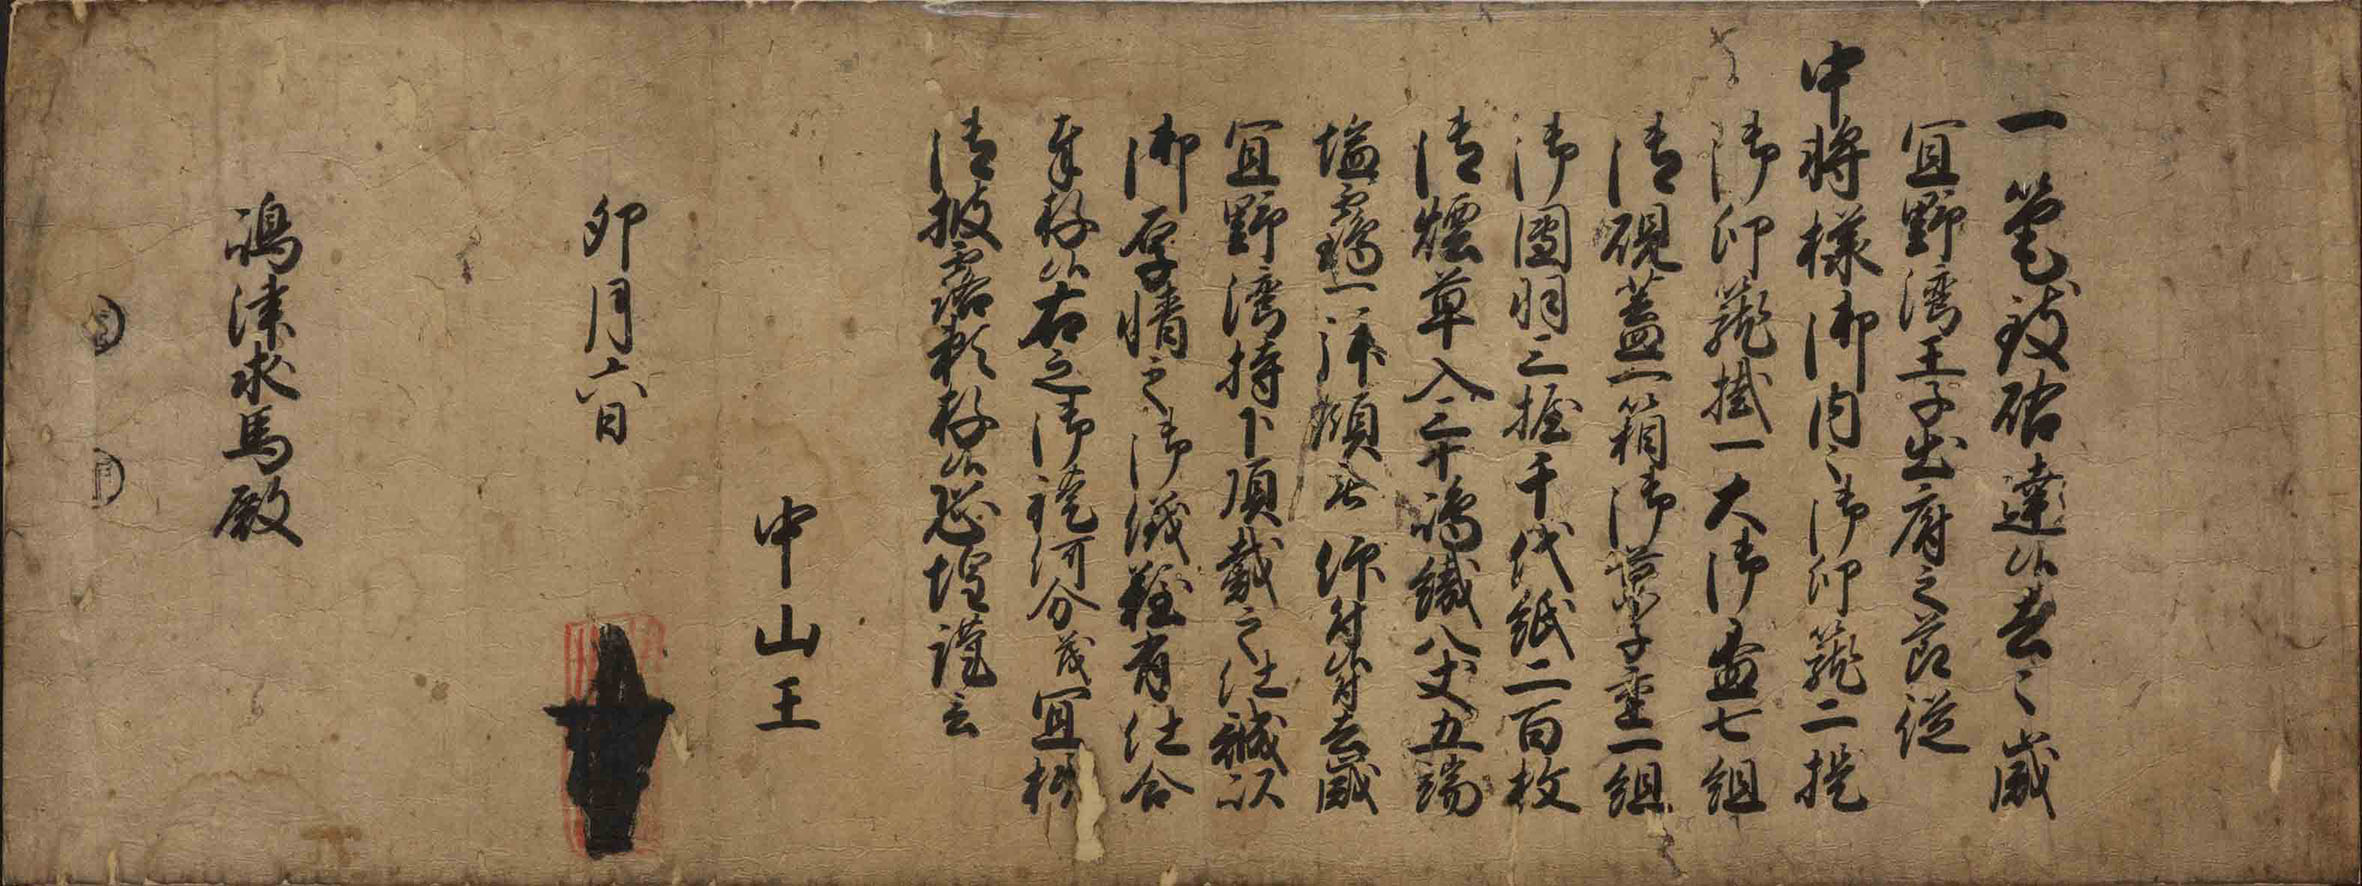 一筆致啓達候去々歳
宜野湾王子出府之節従
中将様御内々御印籠二提
御印籠掛一大御盃七組
御硯蓋一箱御菓子重一組
御團羽三握千代紙二百枚
御煙草入三十嶋織八丈五端
塩露一 被 仰付去歳
宜野湾持下頂戴之仕誠以
御厚情之御儀難有仕合
奉存候右之御礼何分茂宜様
御披露頼存候恐惶謹言
中山王
卯月六日
嶋津求馬殿